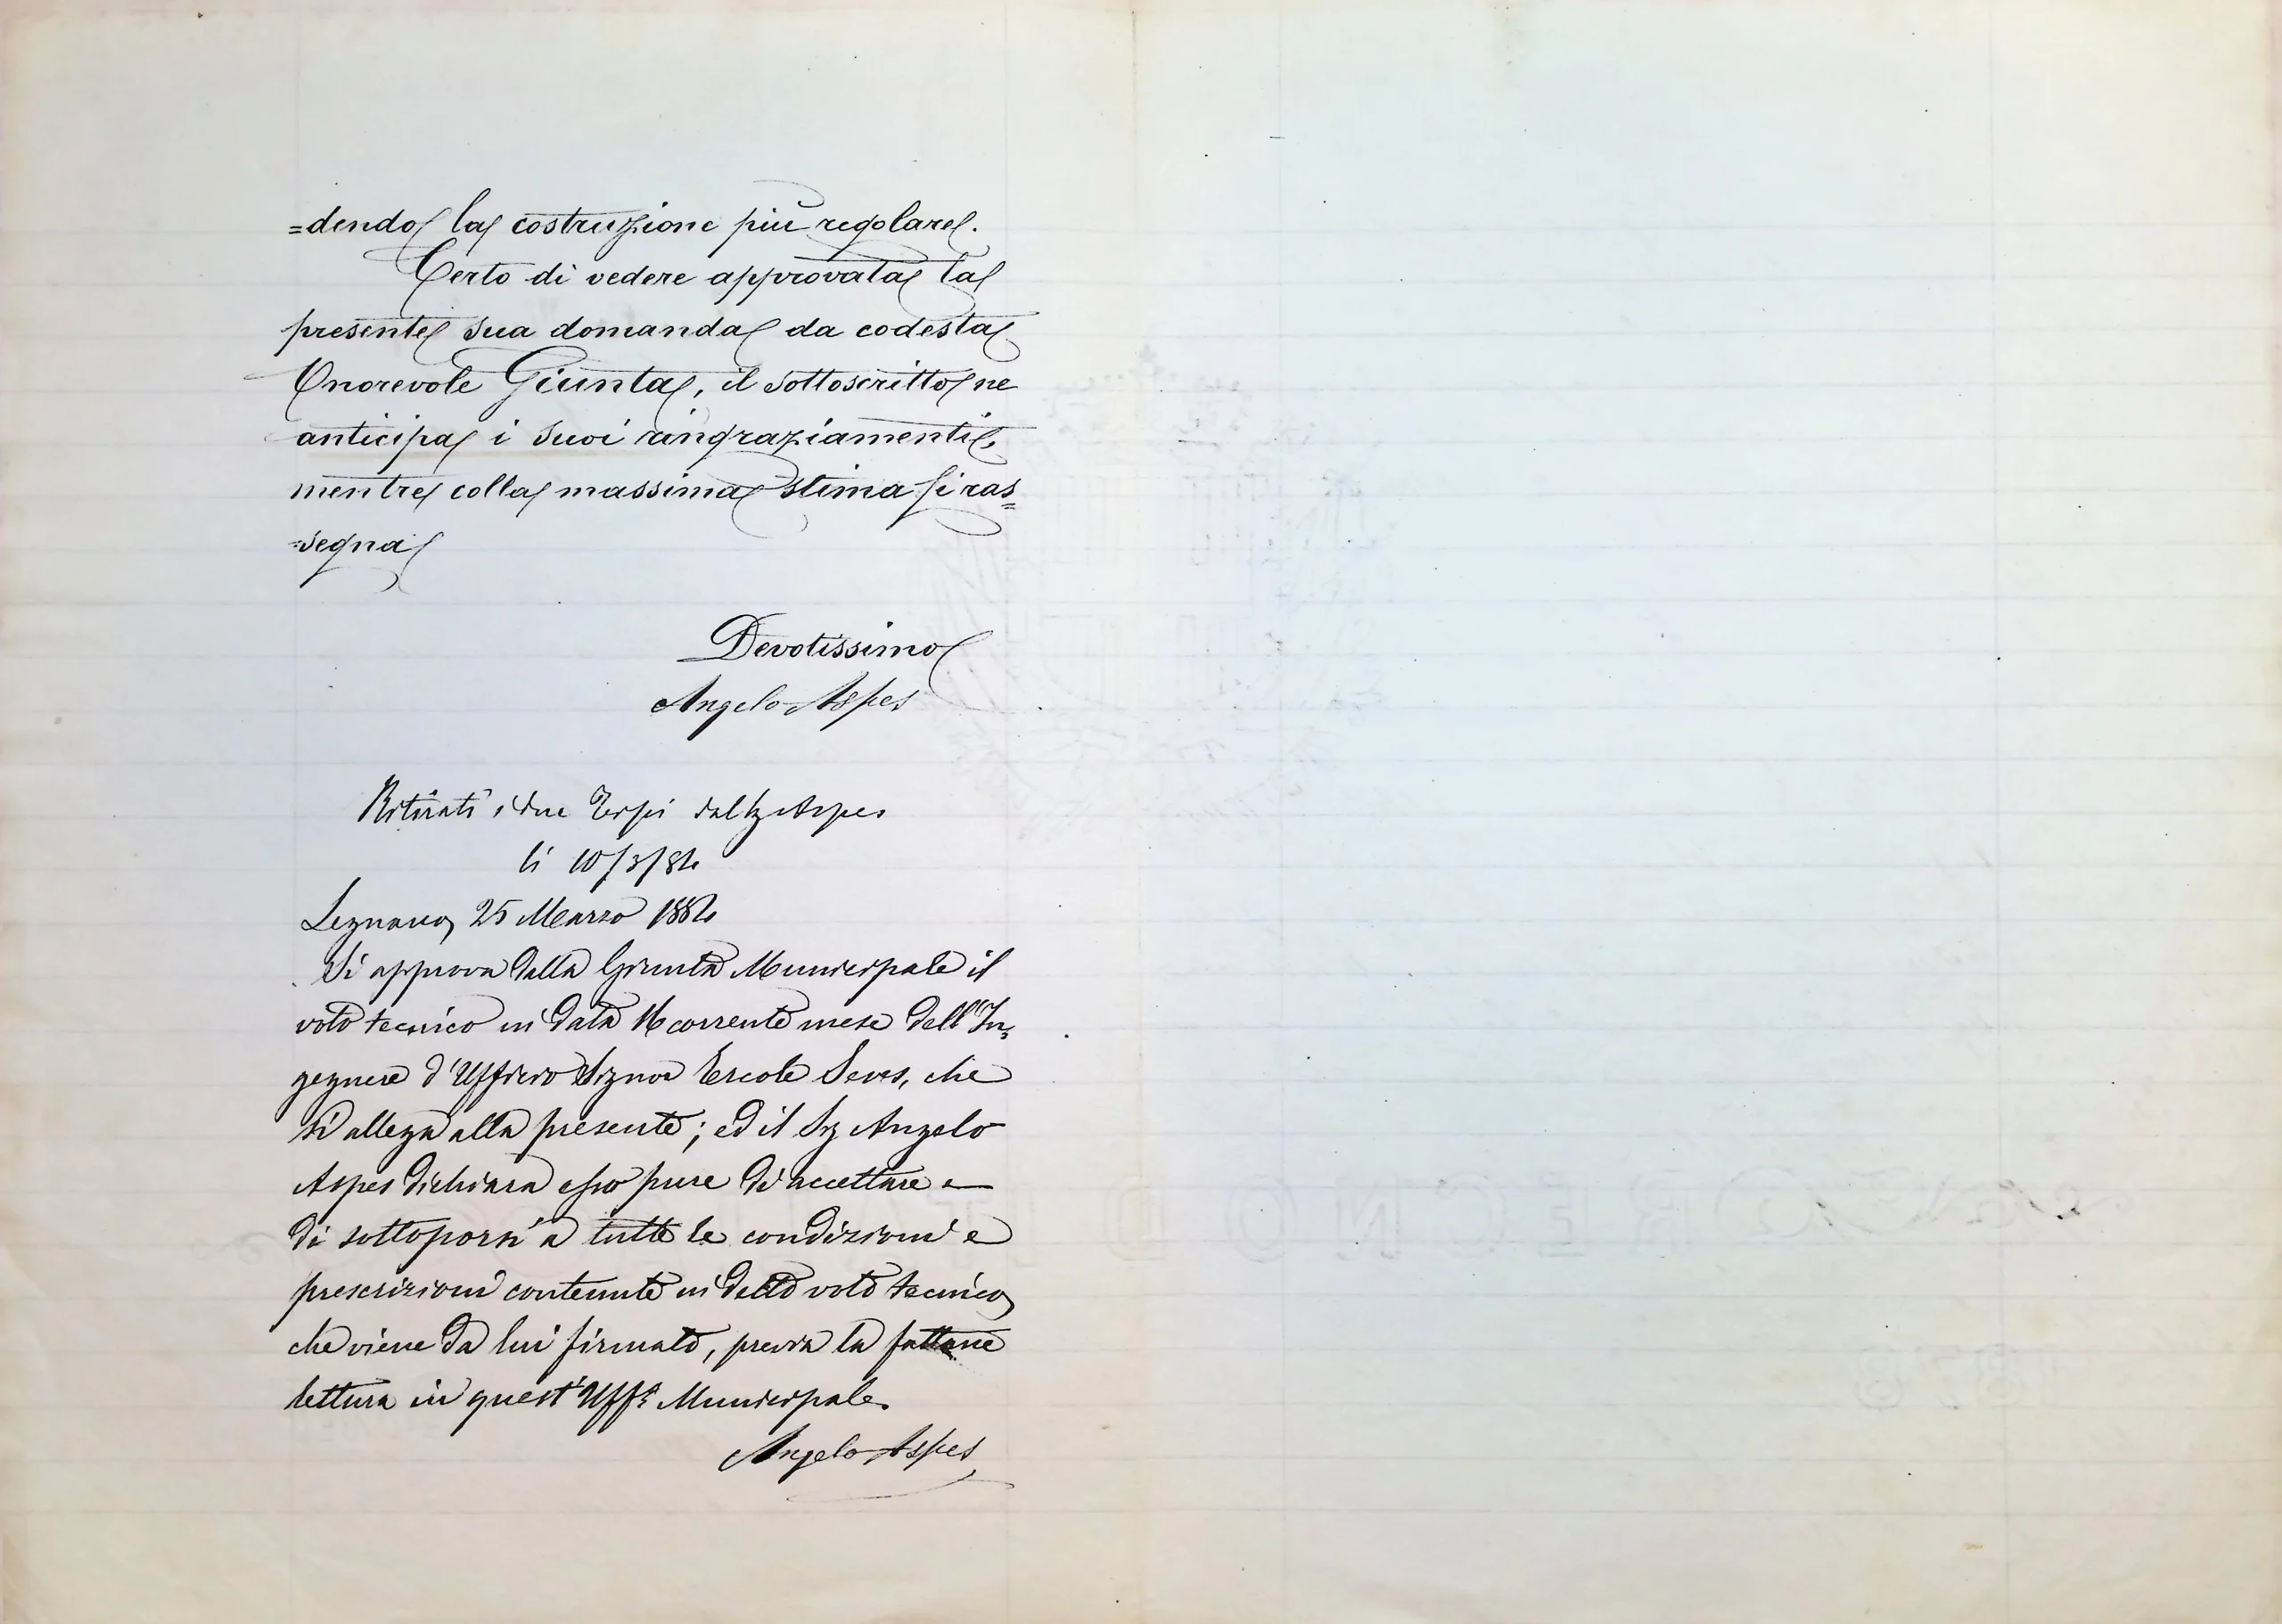 =dendo la costruzione più regolare.
Certo di vedere approvata la
presente sua domanda da codesta
Onorevole Giunta, il sottoscritto ne
anticipa i suoi ringraziamenti,
mentre colla massima stima si ras=
=segna
Devotissimo
Angelo Aspes
Ritirati i due Tipi dal Sg Aspes
li 10/3/84
Legnano, 25 Marzo 1884
Si approva dalla Giunta Municipale il
voto tecnico in data 16 corrente mese dell'In=
gegnere d'Ufficio Signor Ercole Seves, che
si allega alla presente; ed il Sg Angelo
Aspes dichiara esso pure di accettare e
di sottoporsi a tutte le condizioni e
prescrizioni contenute in detto voto tecnico,
che viene da lui firmato, previa la fattane
lettura in quest'Uff.º Municipale.
Angelo Aspes